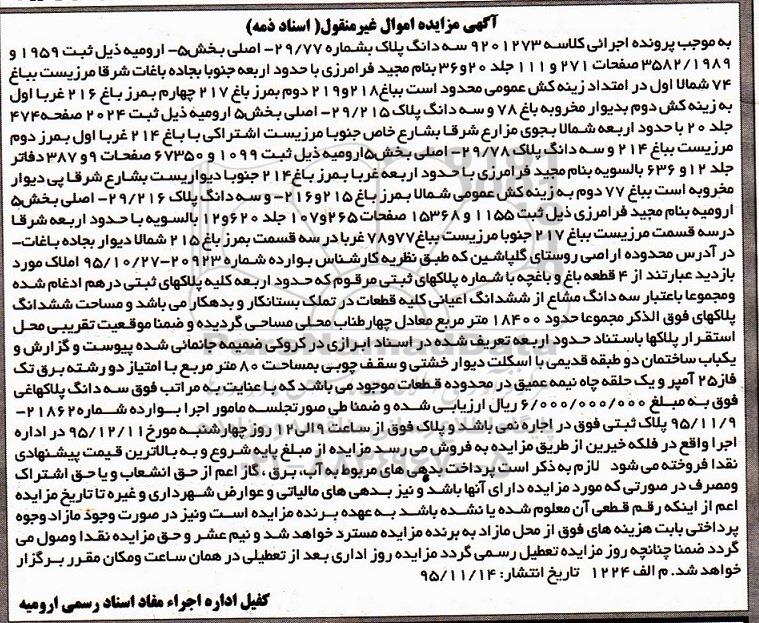 آگهی مزایده اموال غیرمنقول( اسناد ذمه)
به موجب پرونده اجرائی کلاسه ۹۲۰۱۲۷۳ سه دانگ پلاک بشماره ۲۹/۷۷- اصلی بخش۵- ارومیه ذیل ثبت ۱۹۵۹ و
۳۵۸۲/۱۹۸۹ صفحات ۲۷۱ و ۱۱۱ جلد ۲۰و۳۶ بنام مجید فرامرزی با حدود اربعه جنوبا بجاده باغات شرقا مرزیست بباغ
۷۴ شمالا اول در امتداد زینه کش عمومی محدود است بباغ۲۱۸و۲۱۹ دوم بمرز باغ ۲۱۷ چهارم بمرز باغ ۲۱۶ غربا اول
به زینه کش دوم بدیوار مخروبه باغ ۷۸ و سه دانگ پلاک ۲۹/۲۱۵- اصلی بخش۵ ارومیه ذیل ثبت ۲۰۲۴ صفحه۴۷۴
جلد ۲۰ با حدود اربعه شمالا بجوی مزارع شرقا بشارع خاص جنوبا مرزیست اشتراکی با باغ ۲۱۴ غربا اول بمرز دوم
مرزیست بباغ ۲۱۴ و سه دانگ پلاک ۲۹/۷۸- اصلی بخش۵ارومیه ذیل ثبت ۱۰۹۹ و ۶۷۳۵۰ صفحات ۹و ۳۸۷ دفاتر
جلد ۱۲و ۶۳۶ بالسویه بنام مجید فرامرزی با حدود اربعه غربا بمرز باغ۲۱۴ جنوبا دیواریست بشارع شرقا پی دیوار
مخروبه است بباغ ۷۷ دوم به زینه کش عمومی شمالا بمرز باغ ۲۱۵و۲۱۶- و سه دانگ پلاک ۲۹/۲۱۶- اصلی بخش۵
ارومیه بنام مجید فرامرزی ذیل ثبت ۱۱۵۵ و ۱۵۳۶۸ صفحات ۲۶۵و۱۰۷ جلد ۶۲۰و۱۲ بالسویه با حدود اربعه شرقا
درسه قسمت مرزیست بباغ ۲۱۷ جنوبا مرزیست بباغ۷۷و۷۸ غربا در سه قسمت بمرز باغ ۲۱۵ شمالا دیوار بجاده باغات-
در آدرس محدوده اراضی روستای گلپاشین که طبق نظریه کارشناس بوارده شماره ۲۰۹۲۳-۹۵/۱۰/۲۷ املاک مورد
بازدید عبارتند از ۴ قطعه باغ و باغچه با شماره پلاکهای ثبتی مرقوم که حدود اربعه کلیه پلاکهای ثبتی درهم ادغام شده
ومجموعا باعتبار سه دانگ مشاع از ششدانگ اعیانی کلیه قطعات در تملک بستانکار و بدهکار می باشد و مساحت ششدانگ
پلاکهای فوق الذکر مجموعا حدود ۱۸۴۰۰ متر مربع معادل چهارطناب محلی مساحی گردیده و ضمنا موقعیت تقریبی محل
استقرار پلاکها باستناد حدود اربعه تعریف شده در اسناد ابرازی در کروکی ضمیمه جانمائی شده پیوست و گزارش و
یکباب ساختمان دو طبقه قدیمی با اسکلت دیوار خشتی و سقف چوبی بمساحت ۸۰ متر مربع با امتیاز دو رشته برق تک
فاز۲۵ آمپر و یک حلقه چاه نیمه عمیق در محدوده قطعات موجود می باشد که با عنایت به مراتب فوق سه دانگ پلاکهای
فوق به مبلغ ۶/۰۰۰/۰۰۰/۰۰۰ ریال ارزیابی شده و ضمنا طی صورتجلسه مامور اجرا بوارده شماره۲۱۸۶۲-
۹۵/۱۱/۹ پلاک ثبتی فوق در اجاره نمی باشد و پلاک فوق از ساعت ۹ الی۱۲ روز چهارشنبه مورخ۹۵/۱۲/۱۱ در اداره
اجرا واقع در فلکه خیرین از طریق مزایده به فروش می رسد مزایده از مبلغ پایه شروع و به بالاترین قیمت پیشنهادی
نقدا فروخته می شود لازم به ذکر است پرداخت بدهی های مربوط به آب، برق، گاز اعم از حق انشعاب و یا حق اشتراک
ومصرف در صورتی که مورد مزایده دارای آنها باشد و نیز بدهی های مالیاتی و عوارض شهرداری و غیره تا تاریخ مزایده
اعم از اینکه رقم قطعی آن معلوم شده یا نشده باشد به عهده برنده مزایده است ونیز در صورت وجود مازاد وجوه
پرداختی بابت هزینه های فوق از محل مازاد به برنده مزایده مسترد خواهد شد و نیم عشر و حق مزایده نقدا وصول می
گردد ضمنا چنانچه روز مزایده تعطیل رسمی گردد مزایده روز اداری بعد از تعطیلی در همان ساعت ومکان مقرر برگزار
خواهد شد. م الف ۱۲۲۴ تاریخ انتشار: ۹۵/۱۱/۱۴
کفیل اداره اجراء مفاد اسناد رسمی ارومیه